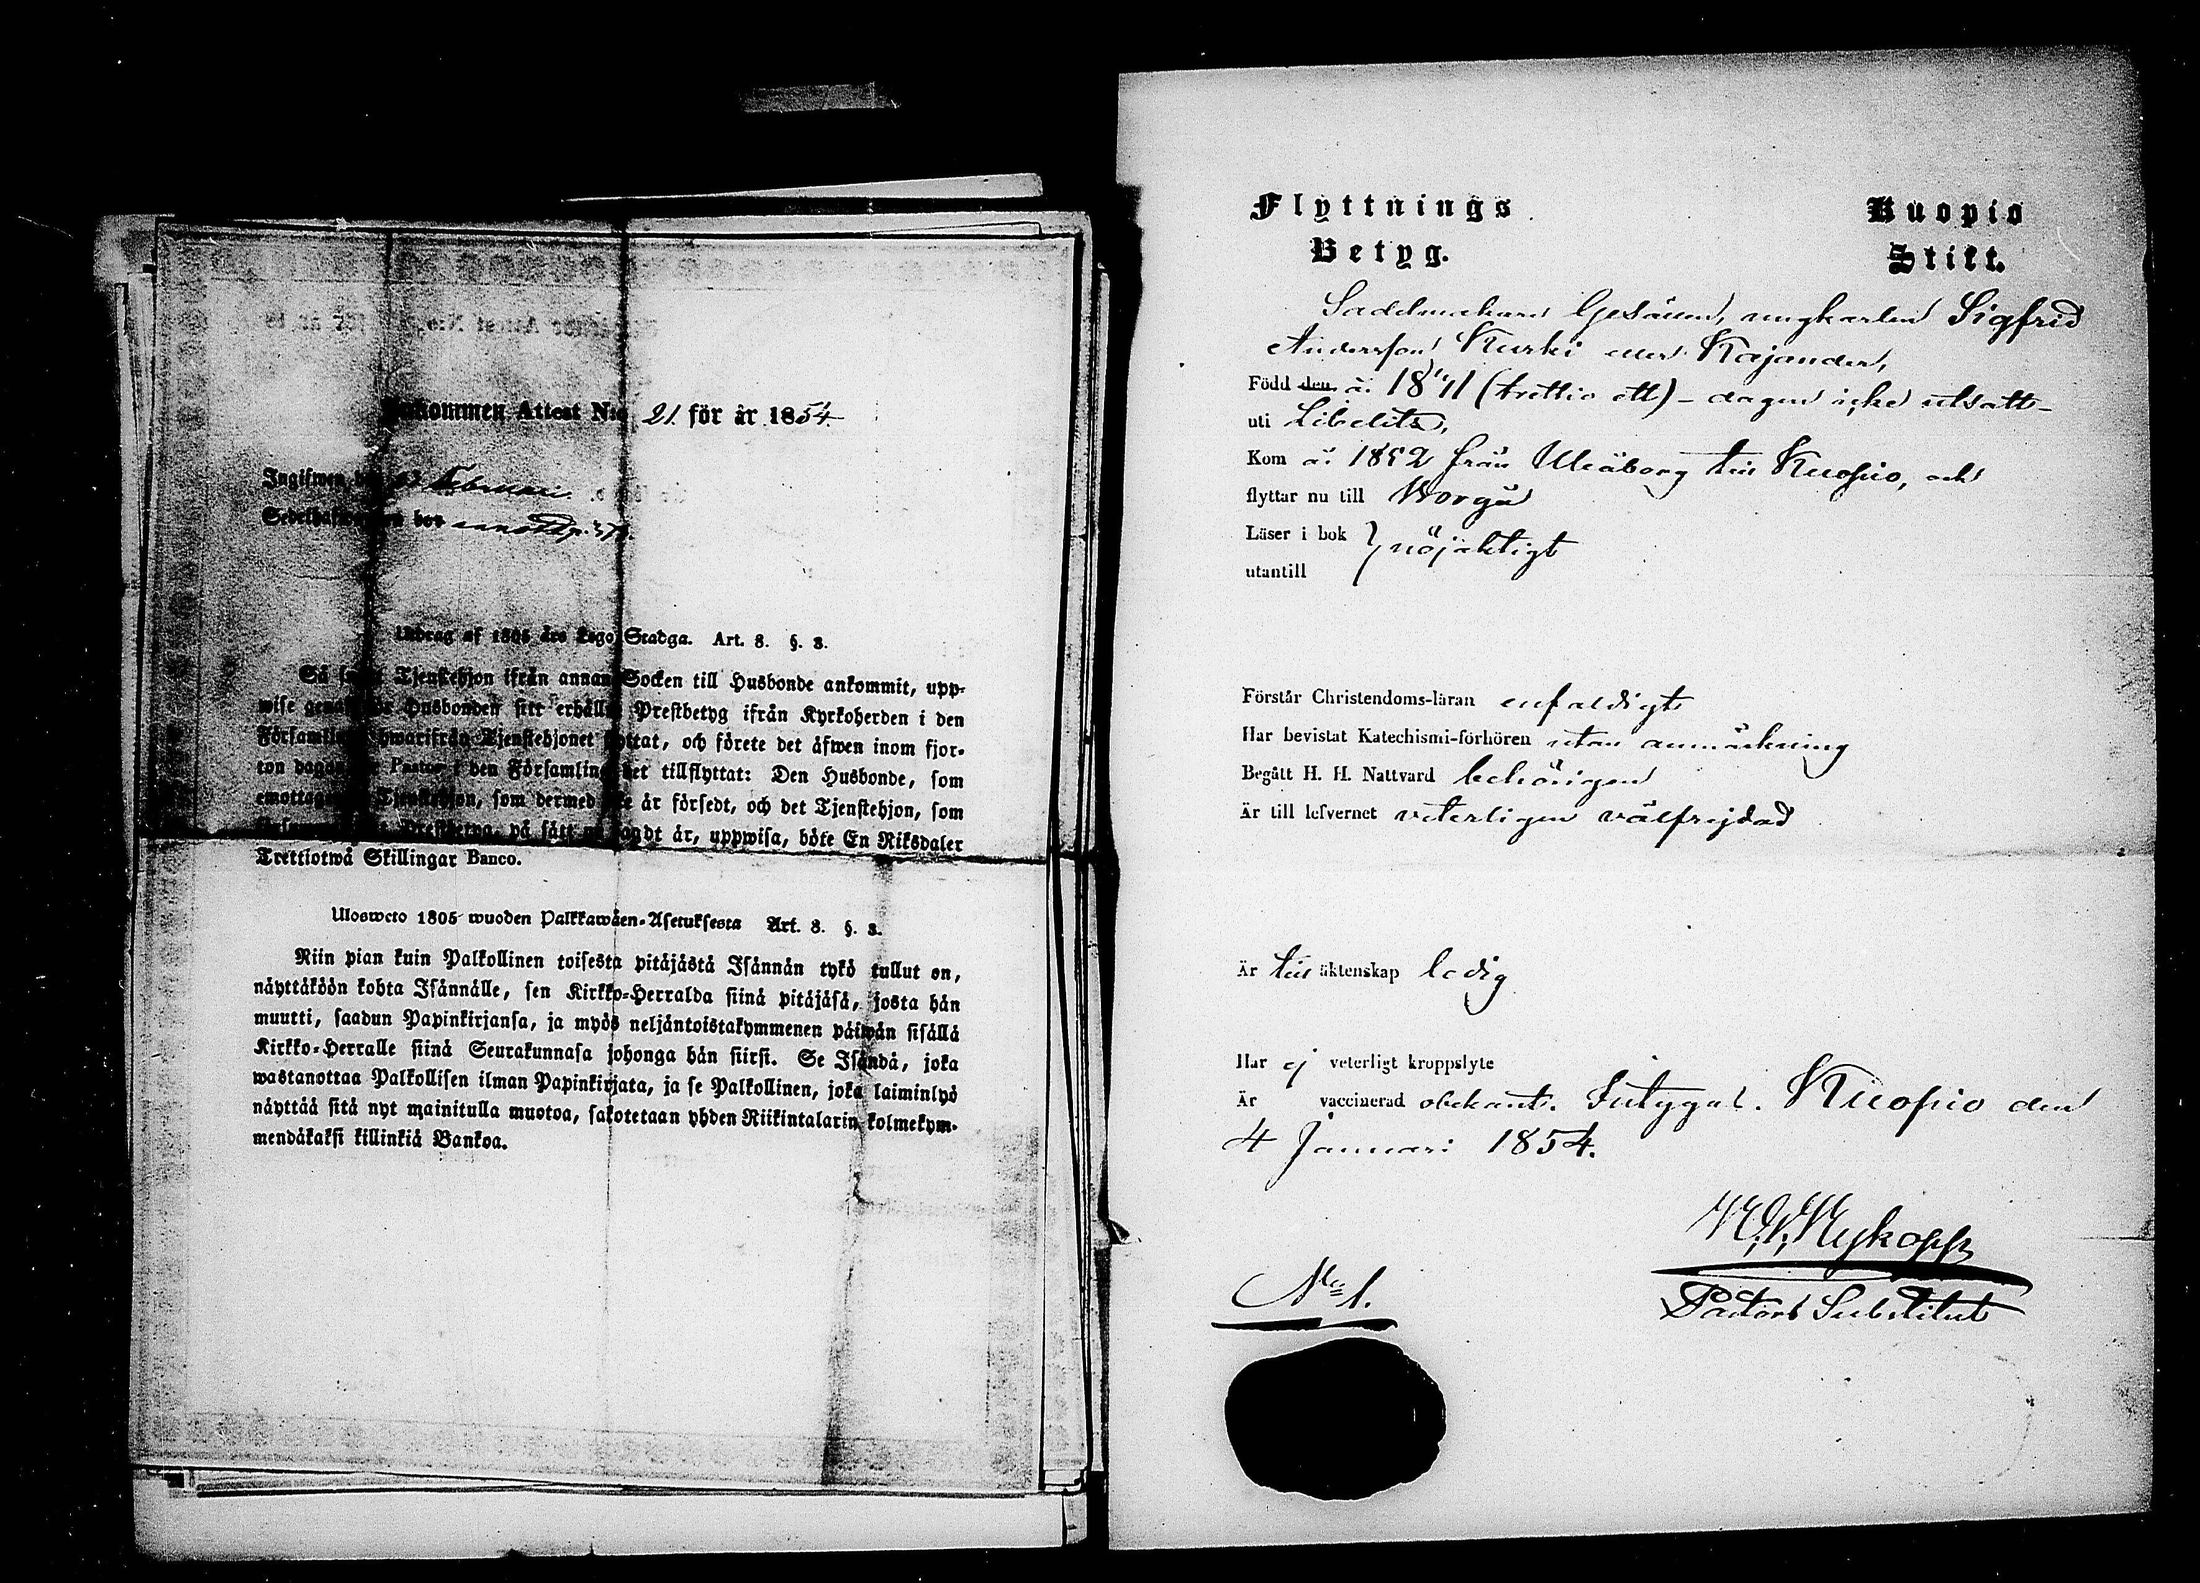 Inkommen Attest N:o 21. för år 1854.
Ingifwen den Februari
Sedelhafwaren bor
Utdrag af 1805 års Lego Stadga. Art. 8. §. 3.
Så snart Tjenstehjon ifrån annan Socken till Husbonde ankommit, upp-
wise genast för Husbonden sitt erhållna Prestbetyg ifrån Kyrkoherden i den
Församling, hwarifrån Tjenstehjonet flyttat, och förete det äfwen inom fjor-
ton dagar för Pastor i den Församling det tillflyttat: Den Husbonde, som
emottager Tjenstehjon, som dermed icke är försedt, och det Tjenstehjon, som
Prestbetyg, på sätt nu sagdt är, uppwisa, böte En Riksdaler
Trettiotwå Skillingar Banco.
Ulosweto 1805 wuoden Palkkawäen-Asetuksesta Art. 8. §. 3.
Niin pian kuin Palkollinen toisesta pitäjästä Isännän tykö tullut on,
näyttäköön kohta Isännälle, sen Kirkko-Herralda siinä pitäjäsä, josta hän
muutti, saadun Papinkirjansa, ja myös neljäntoistakymmenen päiwän sisällä
Kirkko-Herralle siinä Seurakunnasa johonga hän siirsi. Se Isändä, joka
wastanottaa Palkollisen ilman Papinkirjata, ja se Palkollinen, joka laiminlyö
näyttää sitä nyt mainitulla muotoa, sakotetaan yhden Riikintalarin kolmekym-
mendäkaksi killinkiä Bankoa.
Flyttnings Kuopio
Betyg. Stift.
Sadelmakare Gesällen, ungkarlen Sigfrid
Andersson Kurki eller Kajander,
Född den å. 1831 (trettio ett) - dagen icke utsatt -
uti Libelits,
Kom å. 1852 från Uleåborg till Kuopio, och
flyttar nu till Borgå
Läser i bok } nöjaktigt
utantill
Förstår Christendoms-läran enfaldigt
Har bevistat Katechismi-förhören utan anmärkning
Begått H. H. Nattvard behörigen
Är till lefvernet veterligen välfrejdad
Är till äktenskap ledig
Har ej veterligt kroppslyte
Är vaccinerad obekant. Intygat. Kuopio den
4 Januari 1854.
Nykopp
N:o 1.
Pastors Substitut